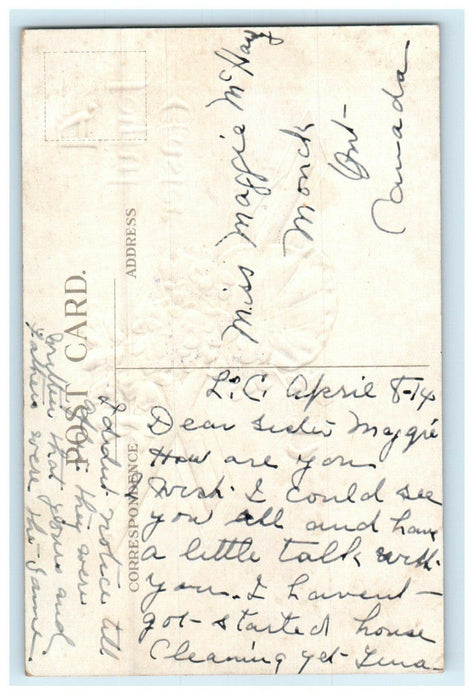 POST CARD.
CORRESPONDENCE
ADDRESS
Miss Maggie McHay
Monck
Ont-
Canada
L.C. April 8-14
Dear Sister Maggie
How are you
Wish I could see
you all and have
a little talk with
you. I havent-
got started house
Cleaning yet- Lena
I didnt notice till
after they were
written that yours and
Fathers were the same.